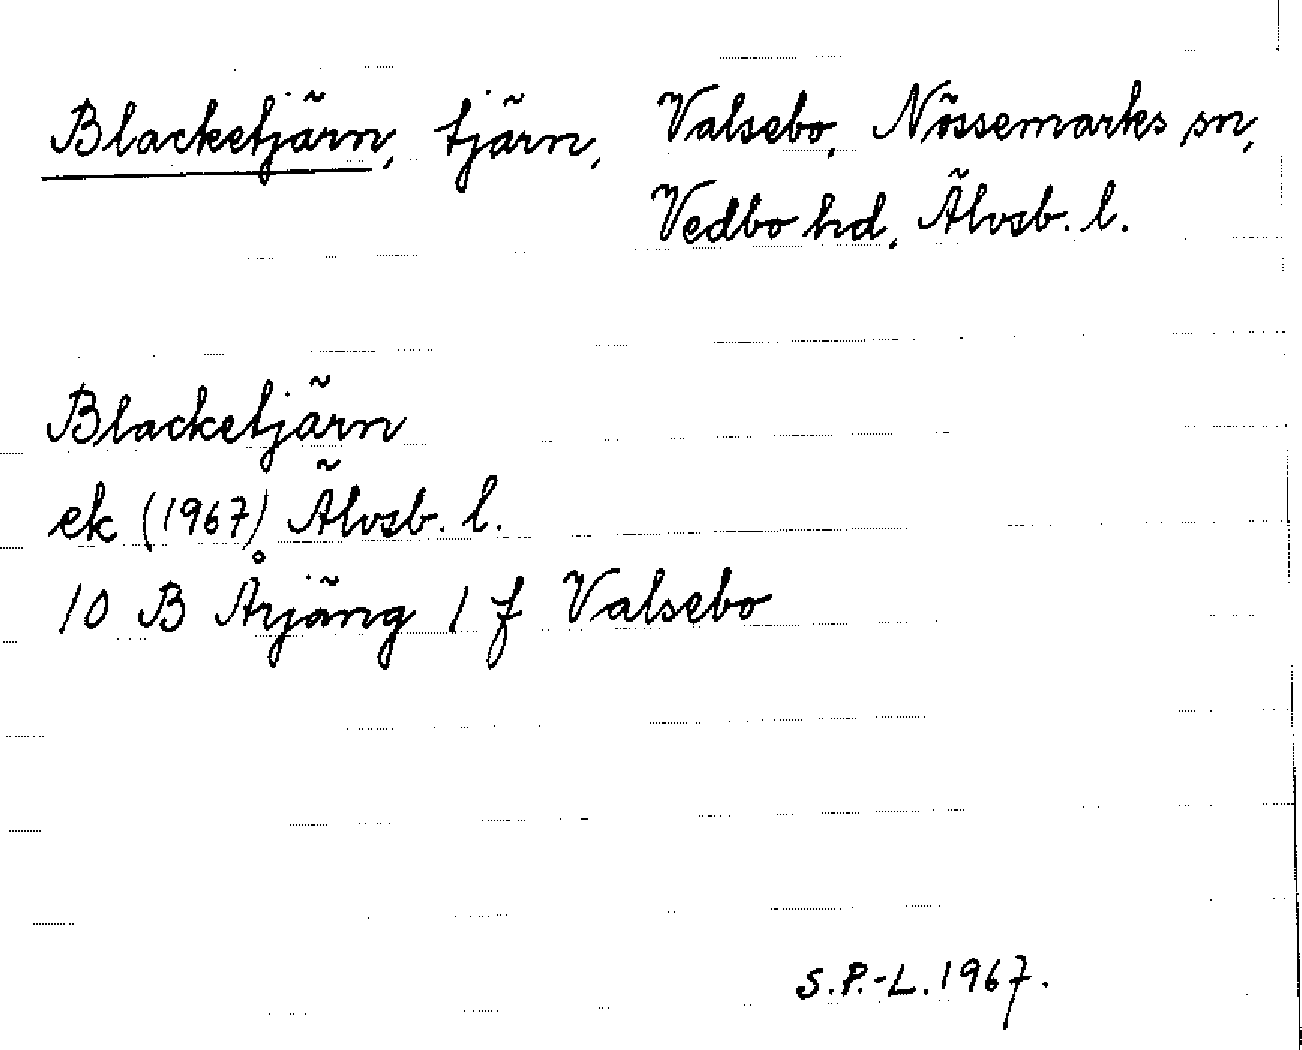 Blacketjärn, tjärn, Valsebo, Nössemarks sn,
Vedbo hd, Älvsb. l.
Blacketjärn
ek (1967) Älvsb. l.
10 B Årjäng 1 f Valsebo
S.P.-L. 1967.